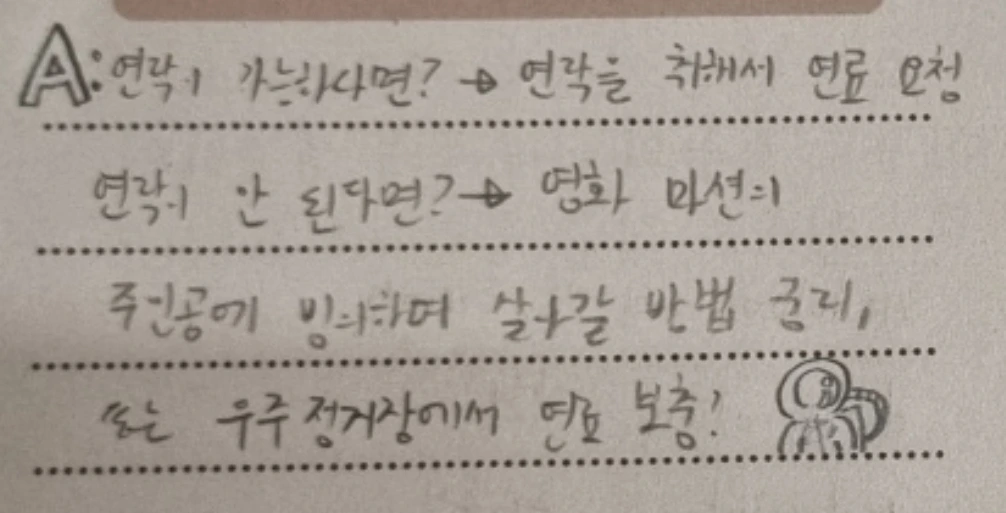 A: 연락이 가능하다면? → 연락을 취해서 연료 요청
연락이 안 된다면? → 영화 마션의
주인공에 빙의하여 살아갈 방법 궁리,
또는 우주정거장에서 연료 보충!